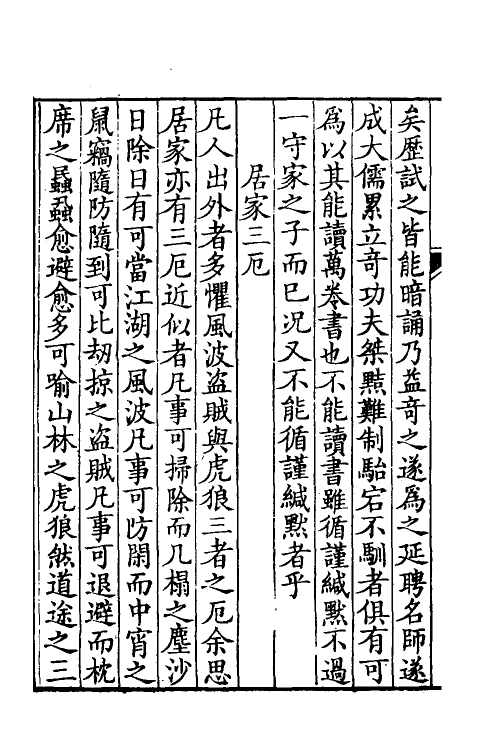 矣歷試之皆能暗誦乃益奇之遂爲之延聘名師遂
成大儒累立奇功夫桀黠難制駘宕不馴者俱有可
爲以其能讀萬卷書也不能讀書雖循謹緘默不過
一守家之子而已况又不能循謹緘默者乎
居家三厄
凡人出外者多懼風波盜賊與虎狼三者之厄余思
居家亦有三厄近似者凡事可掃除而几榻之塵沙
日除日有可當江湖之風波凡事可防閑而中宵之
鼠竊隨防隨到可比劫掠之盜賊凡事可退避而枕
席之蟁蝨愈避愈多可喻山林之虎狼然道途之三